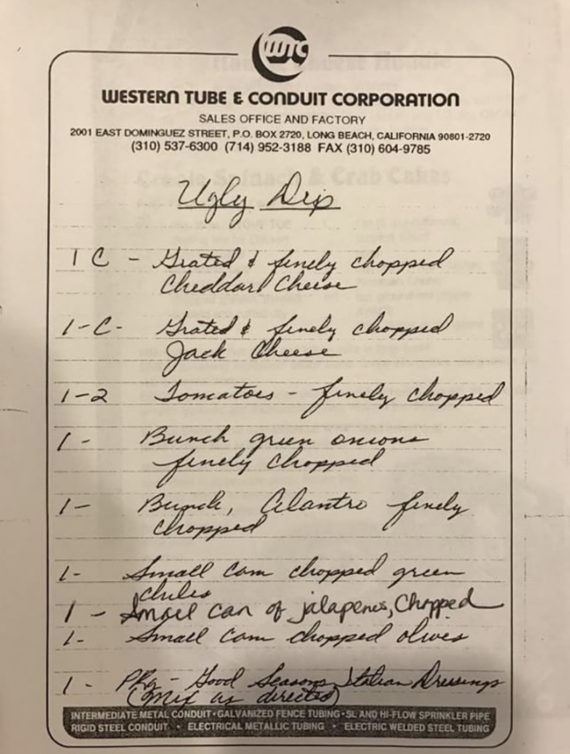 WTC
WESTERN TUBE & CONDUIT CORPORATION
SALES OFFICE AND FACTORY
2001 EAST DOMINGUEZ STREET, P.O. BOX 2720, LONG BEACH, CALIFORNIA 90801-2720
(310) 537-6300 (714) 952-3188 FAX (310) 604-9785
Ugly Dip
1 C - Grated & finely chopped
Cheddar Cheese
1-C- Grated & finely chopped
Jack Cheese
1-2 Tomatoes - finely chopped
1- Bunch green onions
finely chopped
1- Bunch, Cilantro finely
chopped
1- Small can chopped green
chiles
1 - Small can of jalapenos, Chopped
1- Small can chopped olives
1- Pkg - Good Seasons Italian Dressings
(mix as directed)
INTERMEDIATE METAL CONDUIT • GALVANIZED FENCE TUBING • SL AND HI-FLOW SPRINKLER PIPE
RIGID STEEL CONDUIT • ELECTRICAL METALLIC TUBING • ELECTRIC WELDED STEEL TUBING